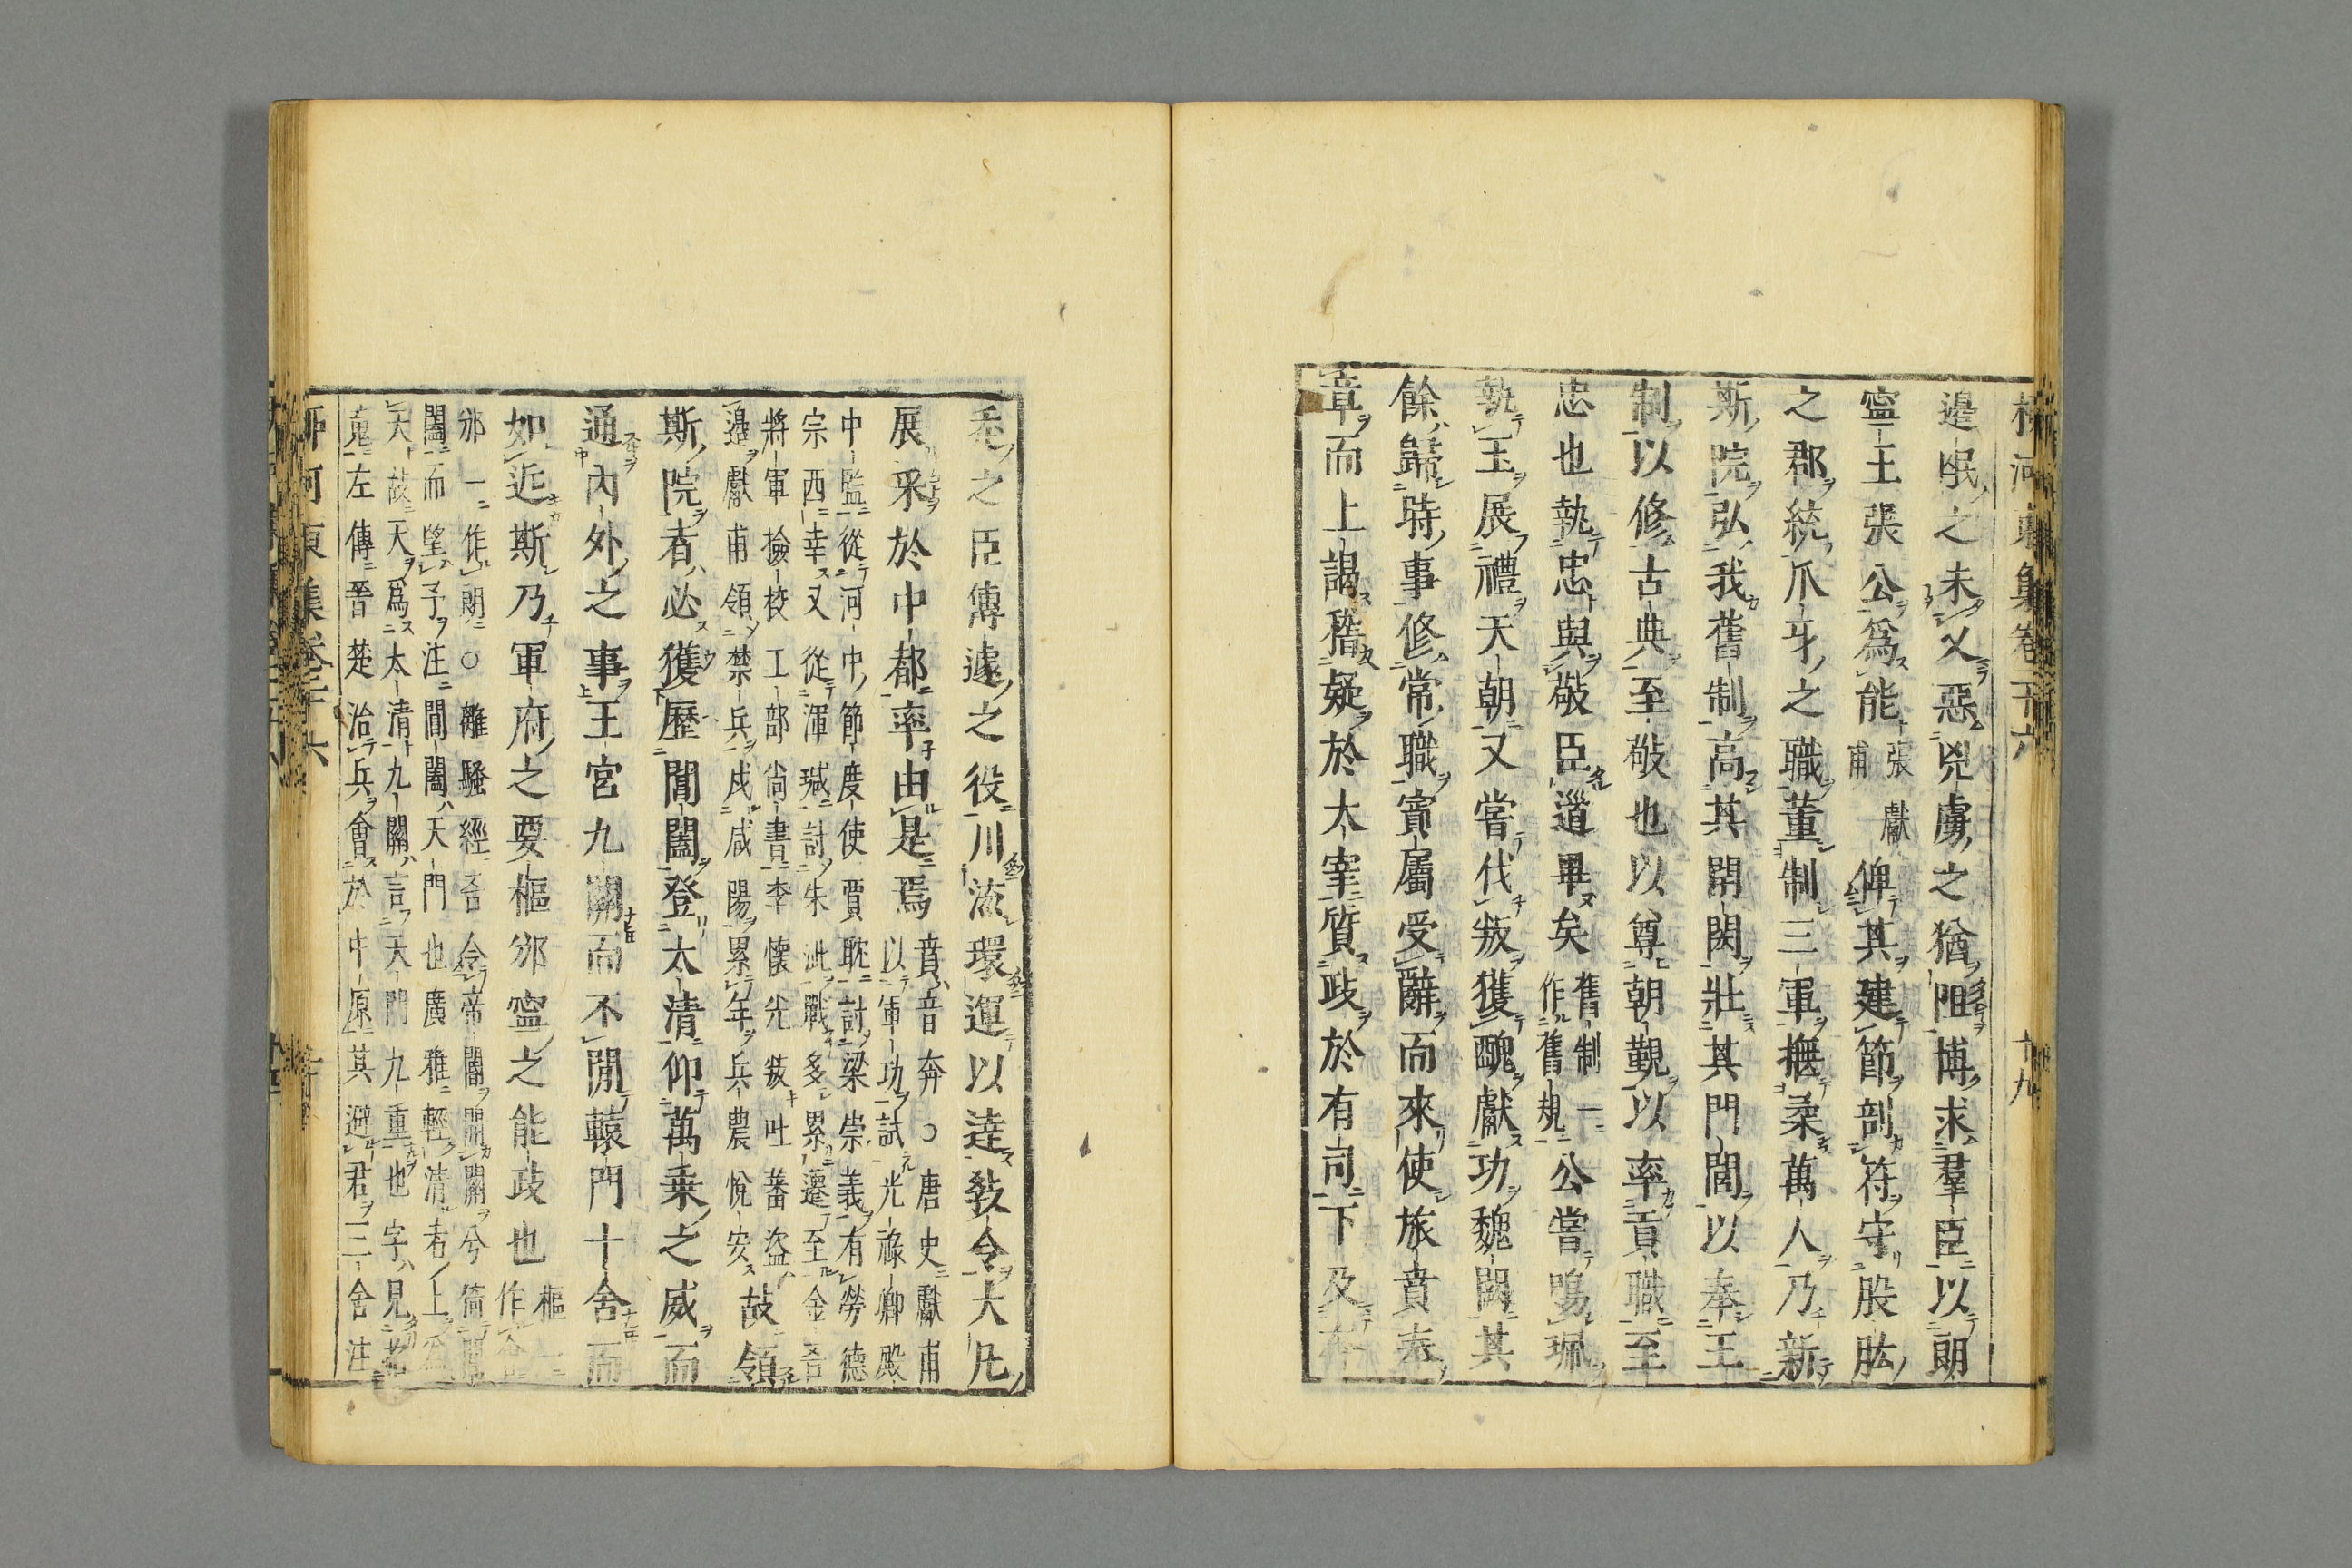 柳河東集卷二十六 十九
邉氓之未乂惡兇虜之猶阻博求羣臣以朗
寧王張公爲能張獻甫俾其建節剖符守股肱
之郡統爪牙之職董制三軍撫柔萬人乃新
斯院弘我舊制高其閈閎壯其門閭以奉王
制以修古典至敬也以尊朝覲以率貢職至
忠也執忠與敬臣道畢矣舊制一作舊規公嘗鳴珮
執玉展禮天朝又嘗伐叛獲醜獻功魏闕其
餘歸時事修常職賓屬受辭而來使旅賁奏
章而上謁稽疑於太宰質政於有司下及奔
走之臣傳遽之役川流環運以達敎令大凡
展采於中都率由是焉賁音奔○唐史獻甫
以軍功試光祿卿殿
中監從河中節度使賈耽討梁崇義有勞德
宗西幸又從渾瑊討朱泚職多累遷至金吾
將軍撿校工部尙書李懷光叛吐蕃盜
邉獻甫領禁兵戍咸陽累年兵農悅安故領
斯院者必獲歷閶闔登太清仰萬乗之威而
通內外之事王宮九關而不閒轅門十舍而
如近斯乃軍府之要樞邠寧之能政也樞一
作
邠一作朗○離騷經吾令帝閽開關兮倚閶
闔而望予注閶闔天門也廣雅輕清者上爲
天故天爲太清九關言天門九重也字見
左傳晉楚治兵會於中原其避君三舍注
柳河東集卷二十六